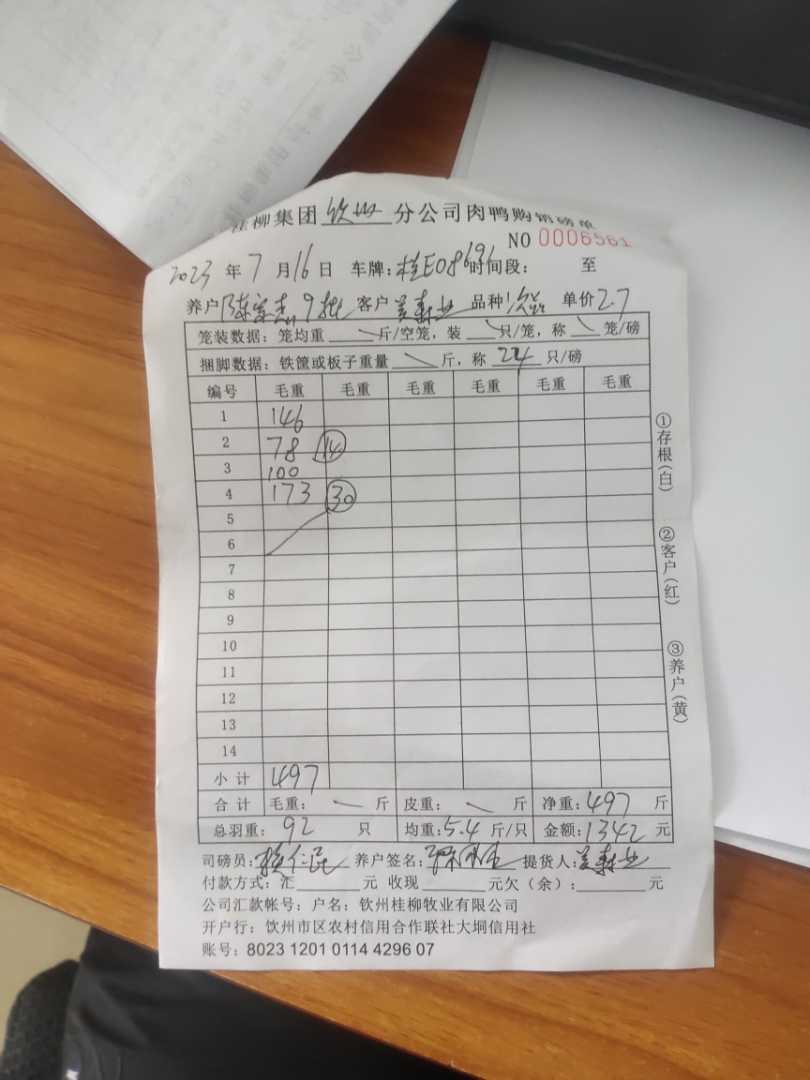 桂柳集团 钦州 分公司肉鸭购销磅单
NO 0006561
2023 年 7 月 16 日 车牌：桂E08691 时间段： 至
养户 9批 客户 品种 次品 单价 2.7
笼装数据：笼均重 斤/空笼，装 只/笼，称 笼/磅
捆脚数据：铁筐或板子重量 斤，称 24 只/磅
编号 毛重 毛重 毛重 毛重 毛重 毛重
1 146
2 78 14
3 100
4 173 30
5
6
7
8
9
10
11
12
13
14
小计 497
合计 毛重： 斤 皮重： 斤 净重：497 斤
总羽重： 92 只 均重：5.4 斤/只 金额：1342 元
司磅员： 养户签名： 提货人：
付款方式：汇 元 收现 元欠（余）： 元
公司汇款帐号：户名：钦州桂柳牧业有限公司
开户行：钦州市区农村信用合作联社大垌信用社
账号：8023 1201 0114 4296 07
①存根(白)
②客户(红)
③养户(黄)